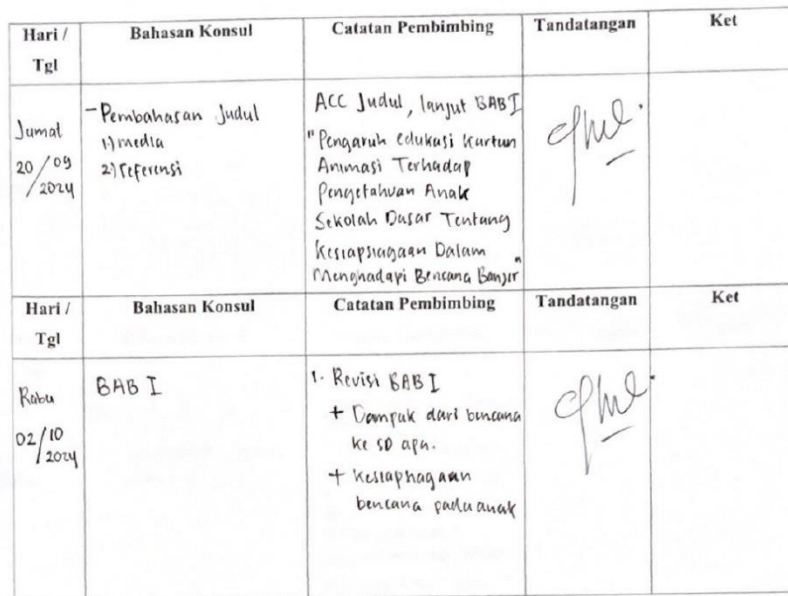 Hari / Tgl
Bahasan Konsul
Catatan Pembimbing
Tandatangan
Ket
Jumat
20/09/2024
- Pembahasan Judul
1) media
2) referensi
ACC Judul, lanjut BAB I
"Pengaruh edukasi Kartun
Animasi Terhadap
Pengetahuan Anak
Sekolah Dasar Tentang
Kesiapsiagaan Dalam
Menghadapi Bencana Banjir"
Hari / Tgl
Bahasan Konsul
Catatan Pembimbing
Tandatangan
Ket
Rabu
02/10/2024
BAB I
1. Revisi BAB I
+ Dampak dari bencana
ke SD apa.
+ Kesiaphagaan
bencana pada anak